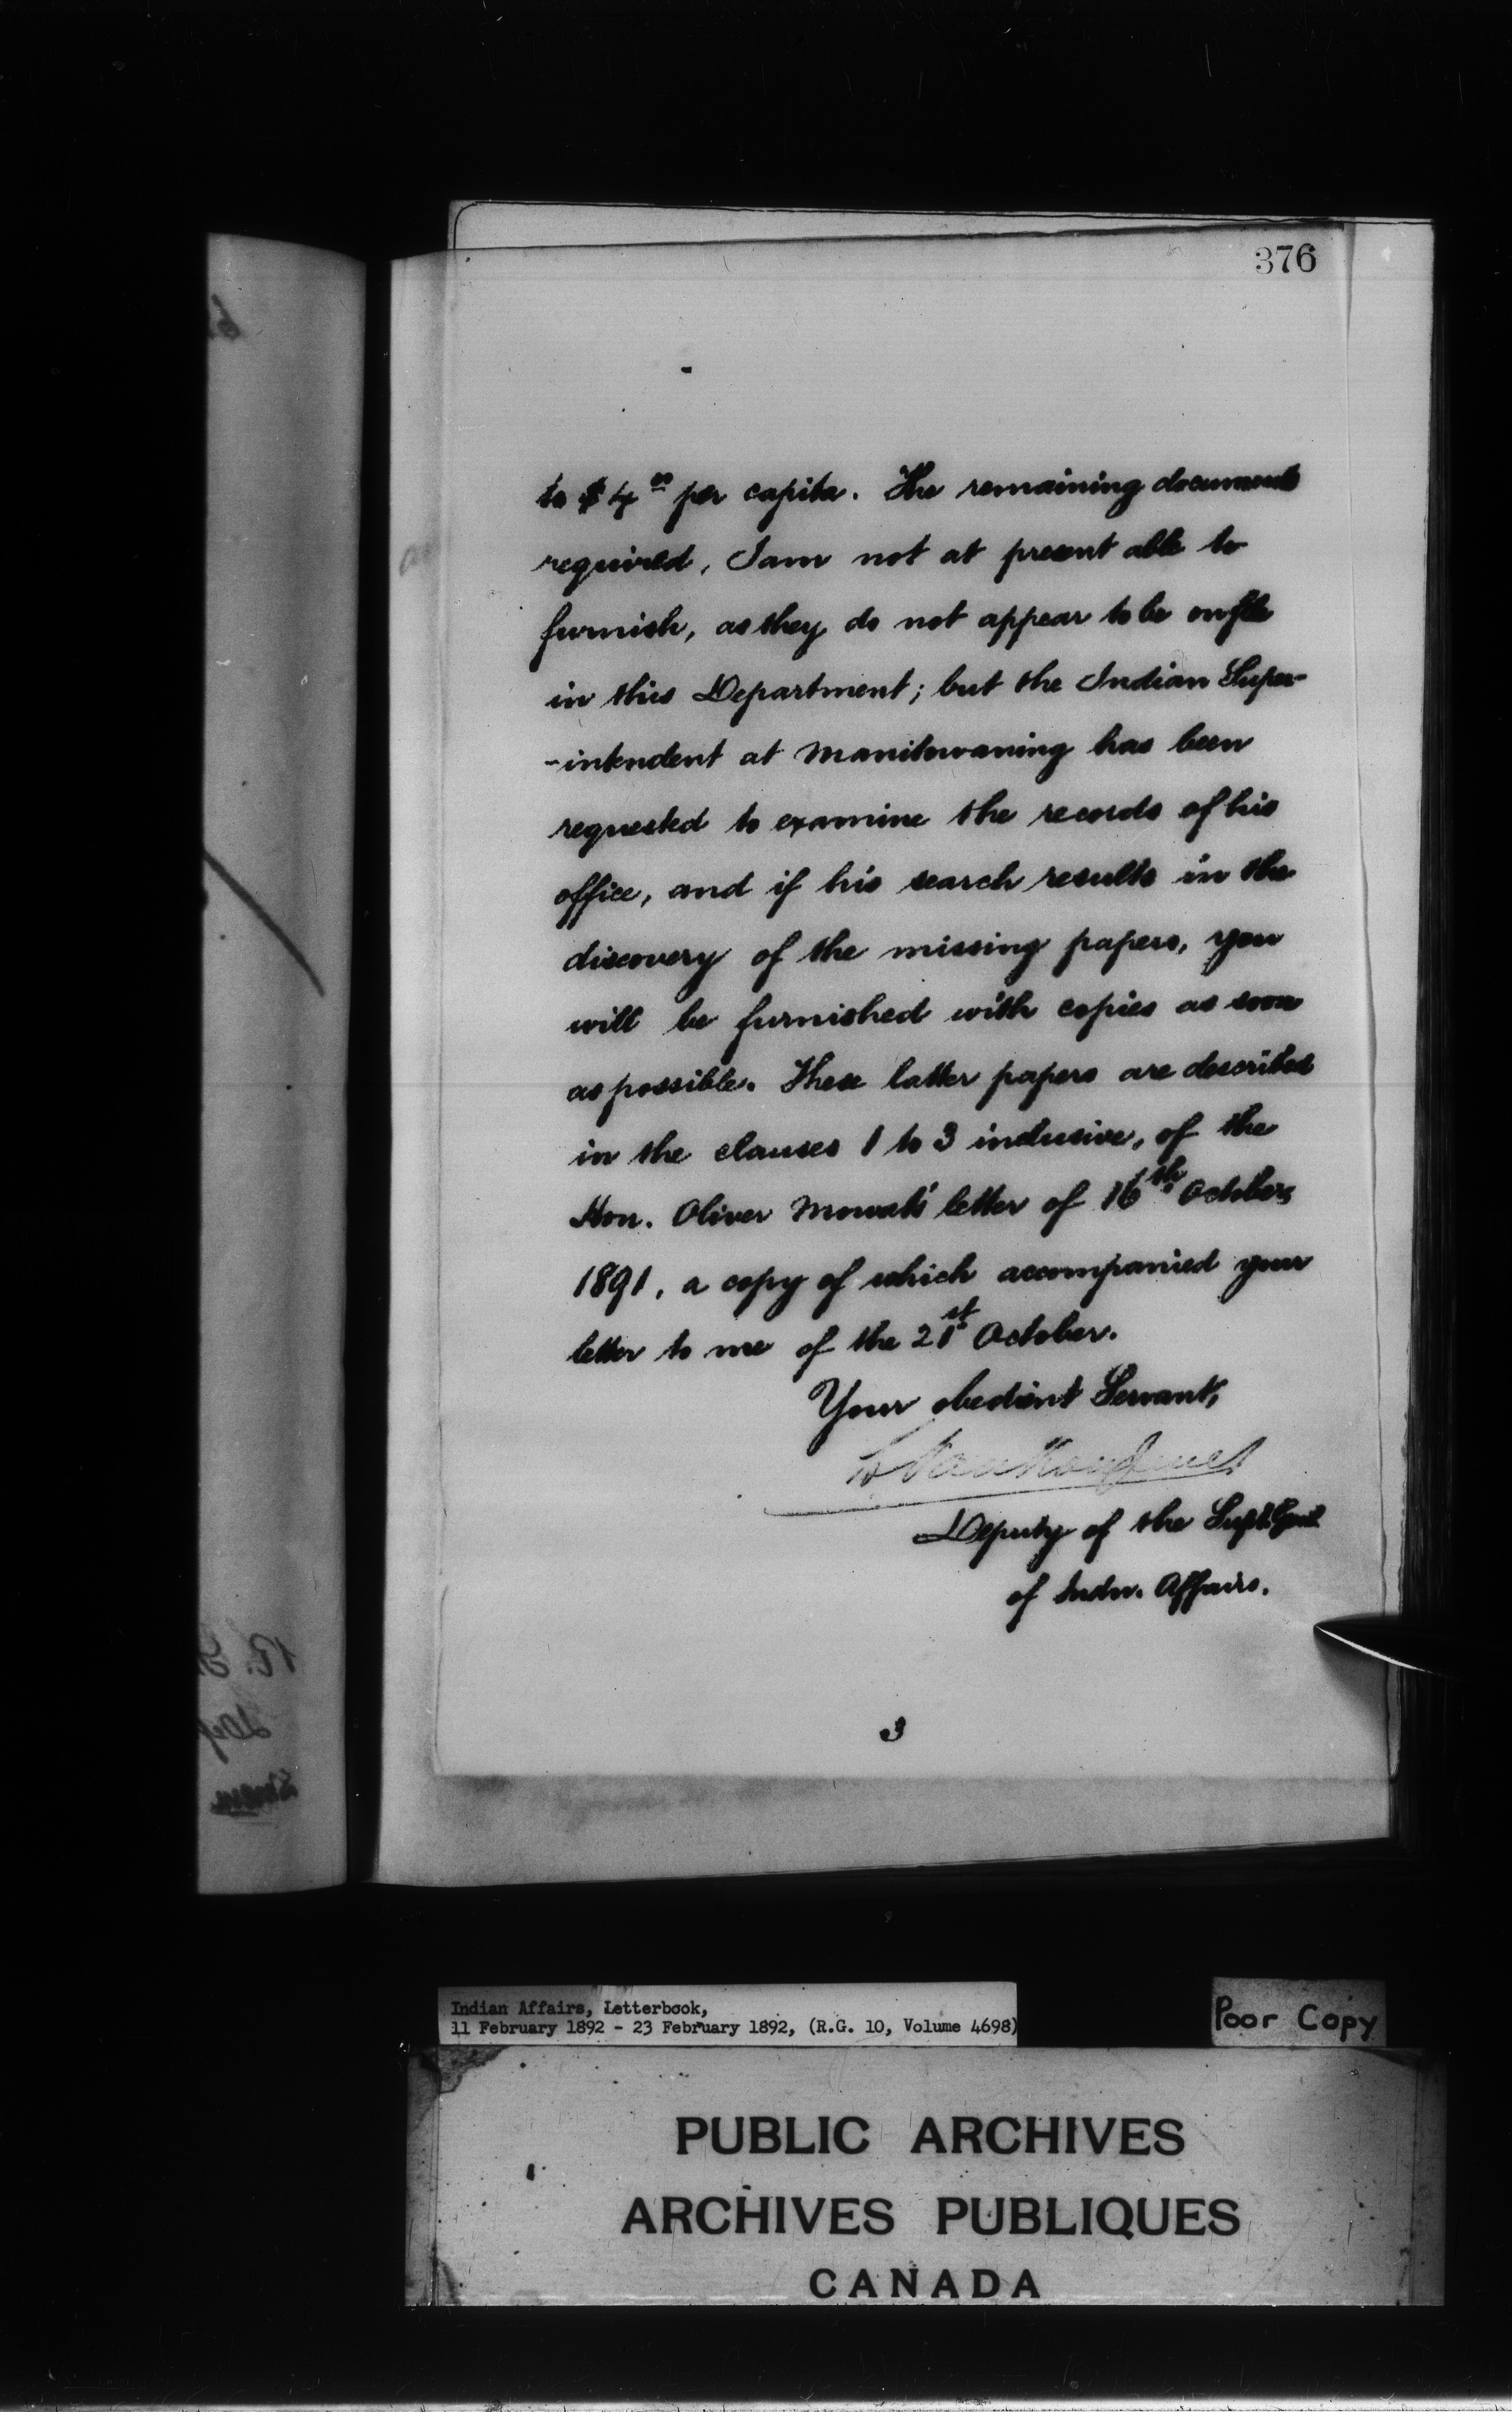 376
to $4.00 per capita. The remaining documents
required, I am not at present able to
furnish, as they do not appear to be on file
in this Department; but the Indian Super-
-intendent at Manitowaning has been
requested to examine the records of his
office, and if his search results in the
discovery of the missing papers, you
will be furnished with copies as soon
as possible. These latter papers are described
in the clauses 1 to 3 inclusive, of the
Hon. Oliver Mowat's letter of 16th October
1891, a copy of which accompanied your
letter to me of the 21st October.
Your obedient Servant,
L Vankoughnet
Deputy of the Supt. Genl.
of Indn. Affairs.
3
Indian Affairs, Letterbook,
11 February 1892 - 23 February 1892, (R.G. 10, Volume 4698)
Poor Copy
PUBLIC ARCHIVES
ARCHIVES PUBLIQUES
CANADA